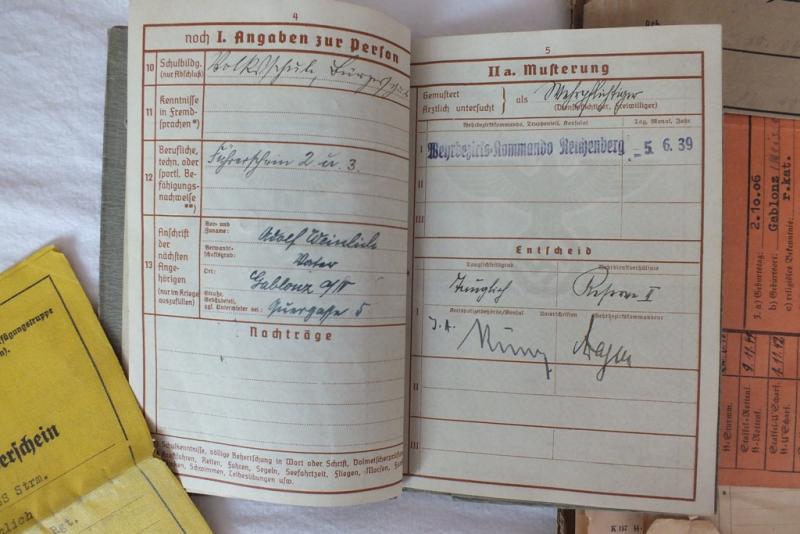 4
noch I. Angaben zur Person
10
Schulbildg.
(nur Abschluß)
Volksschule, Bürgerschule
11
Kenntnisse
in Fremd-
sprachen*)
12
Berufliche,
techn. oder
sportl. Be-
fähigungs-
nachweise
**)
Führerschein 2 u. 3.
13
Anschrift
der
nächsten
Ange-
hörigen
(nur im Kriege
auszufüllen)
Vor- und
Zuname:
Adolf Weinlich
Verwandt-
schaftsgrad:
Vater
Ort:
Gablonz a/N
Straße,
Gebäudeteil,
ggf. Untermieter bei:
Quergasse 5
Nachträge
Schulkenntnisse, völlige Beherrschung in Wort oder Schrift, Dolmetscherprüfung
Kraftfahren, Reiten, Fahren, Segeln, Seefahrtzeit, Fliegen, Morsen, Funken
Schwimmen, Leibesübungen usw.
5
II a. Musterung
Gemustert
Ärztlich untersucht
als
Wehrpflichtiger
(Dienstpflichtiger, Freiwilliger)
Wehrbezirkskommando, Truppenteil, Konsulat
Tag, Monat, Jahr
I
Wehrbezirks-Kommando Reichenberg
- 5. 6. 39
II
III
Entscheid
Tauglichkeitsgrad
Wehrdienstverhältnis
Tauglich
Reserve II
Unterschriften
Wehrbezirkskommandeur
I. A.
II
III
fügungstruppe
erschein
ss Strm.
lich
Rgt.
I. a) Geburtstag:
2.10.06
b) Geburtsort:
Gablonz
c) religiöses Bekenntnis:
r.kat.
K 157 H-